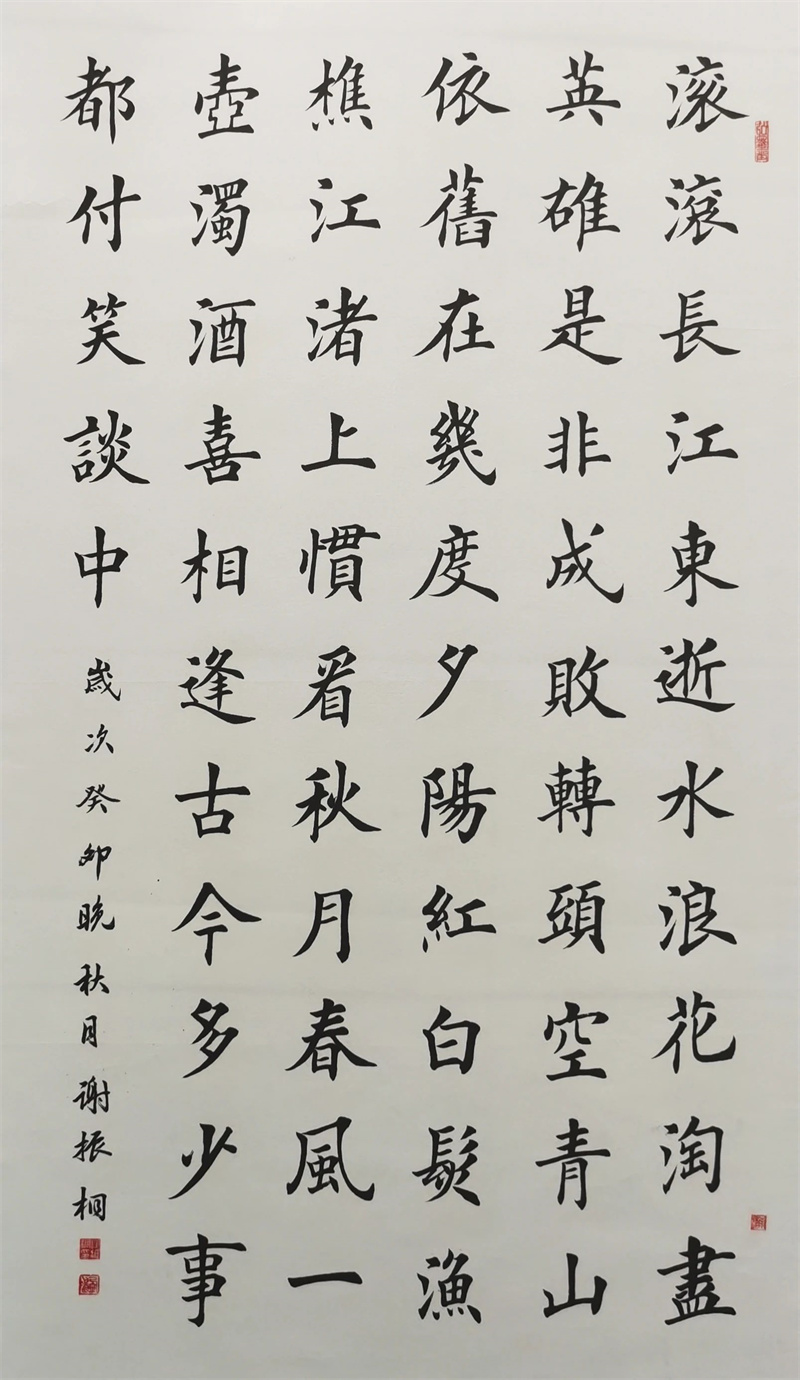 滚滚長江東逝水浪花淘盡
英雄是非成敗轉頭空青山
依舊在幾度夕陽紅白髮漁
樵江渚上慣看秋月春風一
壺濁酒喜相逢古今多少事
都付笑談中
歲次癸卯晚秋月謝振桐